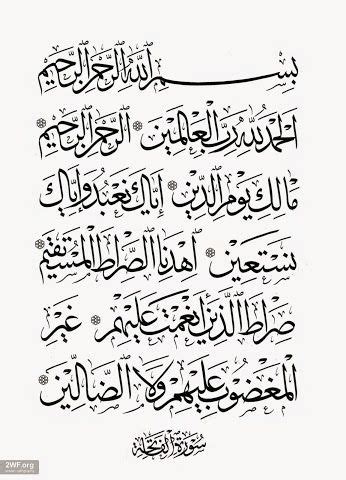 بسم الله الرحمن الرحيم
الحمد لله رب العالمين ۞ الرحمن الرحيم ۞
مالك يوم الدين ۞ إياك نعبد وإياك
نستعين ۞ اهدنا الصراط المستقيم ۞
صراط الذين أنعمت عليهم ۞ غير
المغضوب عليهم ولا الضالين ۞
سورة الفاتحة
2WF.org